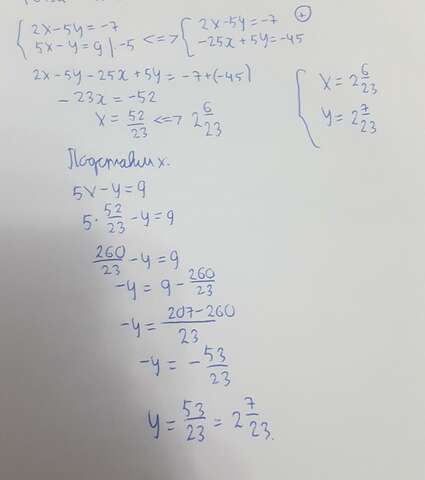 { 2x-5y=-7
5x-y=9 |·-5 <=> { 2x-5y=-7
-25x+5y=-45 (+)
2x-5y-25x+5y=-7+(-45)
-23x=-52
x=52/23 <=> 2 6/23
{ x=2 6/23
y=2 7/23
Подставим x.
5x-y=9
5·52/23-y=9
260/23-y=9
-y=9-260/23
-y=207-260/23
-y=-53/23
y=53/23=2 7/23.